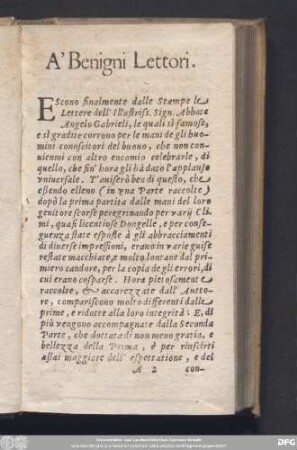 A' Benigni Lettori.
EScono finalmente dalle Stampe le
Lettere dell' Illustriss. Sign. Abbate
Angelo Gabrieli, le quali sì famose,
e sì gradite corrono per le mani de gli huo-
mini conoscitori del buono, che non con-
uienmi con altro encomio celebrarle, di
quello, che fin' hora gli hà dato l'applauso
vniuersale. T'auiserò ben di questo, che
essendo elleno (in vna Parte raccolte)
dopò la prima partita dalle mani del loro
genitore scorse peregrinando per varij Cli-
mi, quasi licentiose Donzelle, e per conse-
guenza state esposte à gli abbracciamenti
di diuerse impressioni, erano in varie guise
restate macchiate, e molto lontane dal pri-
miero candore, per la copia de gli errori, di
cui erano cosparse. Hora pietosamente
raccolte, & accarezzate dall' Autto-
re, compariscono molto differenti dalle
prime, e ridotte alla loro integrità: E, di
più vengono accompagnate dalla Seconda
Parte, che dottata di non meno gratia, e
bellezza della Prima, è per riuscirti
assai maggiore dell' espettatione, e del
A 2 con-